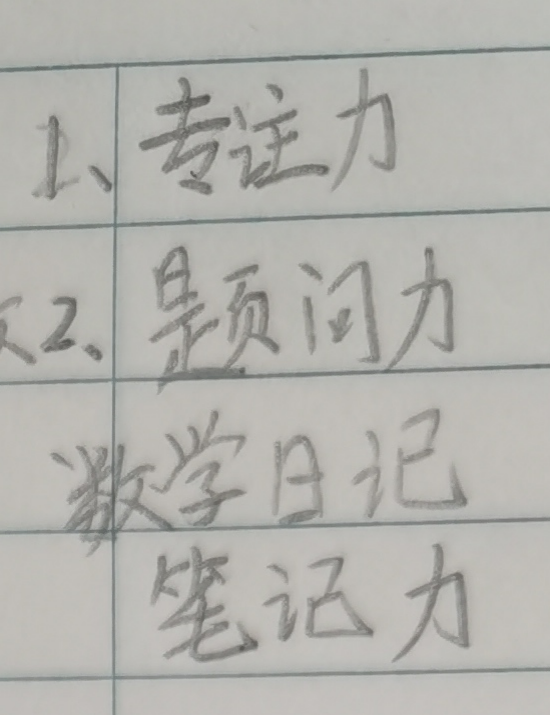 1、专注力
2、题问力
数学日记
笔记力